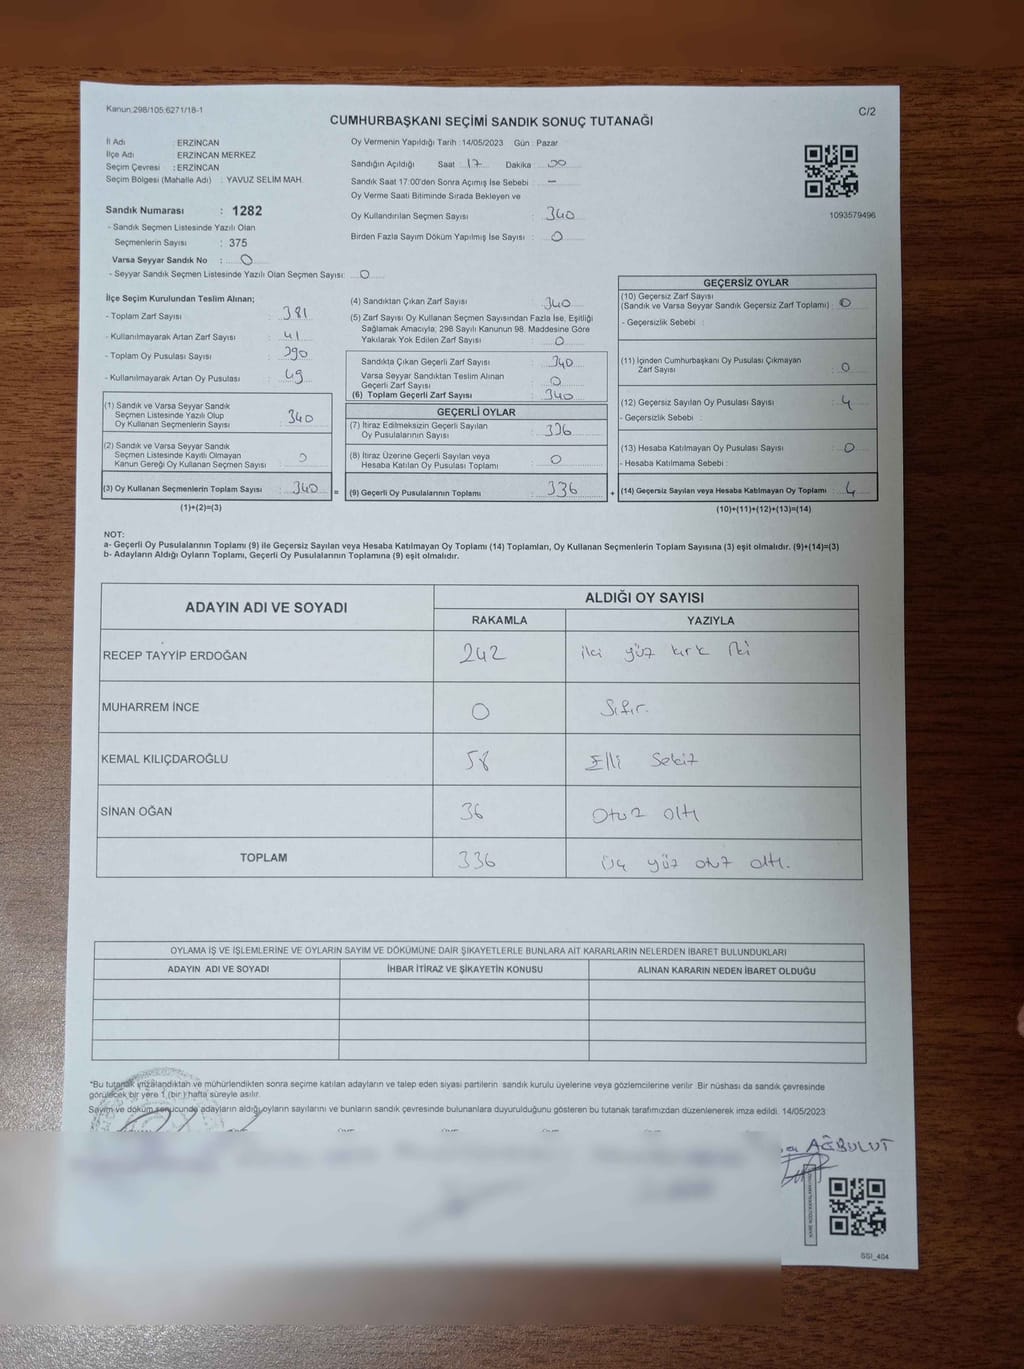 Kanun:298/105;6271/18-1
C/2
CUMHURBAŞKANI SEÇİMİ SANDIK SONUÇ TUTANAĞI
İl Adı : ERZİNCAN
İlçe Adı : ERZİNCAN MERKEZ
Seçim Çevresi : ERZİNCAN
Seçim Bölgesi (Mahalle Adı) : YAVUZ SELİM MAH.
Sandık Numarası : 1282
- Sandık Seçmen Listesinde Yazılı Olan
Seçmenlerin Sayısı : 375
Varsa Seyyar Sandık No : 0
- Seyyar Sandık Seçmen Listesinde Yazılı Olan Seçmen Sayısı: 0
Oy Vermenin Yapıldığı Tarih : 14/05/2023 Gün : Pazar
Sandığın Açıldığı Saat : 17 Dakika : 00
Sandık Saat 17:00'den Sonra Açımış İse Sebebi : —
Oy Verme Saati Bitiminde Sırada Bekleyen ve
Oy Kullandırılan Seçmen Sayısı : 340
Birden Fazla Sayım Döküm Yapılmış İse Sayısı : 0
1093579496
İlçe Seçim Kurulundan Teslim Alınan;
- Toplam Zarf Sayısı : 381
- Kullanılmayarak Artan Zarf Sayısı : 41
- Toplam Oy Pusulası Sayısı : 390
- Kullanılmayarak Artan Oy Pusulası : 49
(1) Sandık ve Varsa Seyyar Sandık
Seçmen Listesinde Yazılı Olup
Oy Kullanan Seçmenlerin Sayısı : 340
(2) Sandık ve Varsa Seyyar Sandık
Seçmen Listesinde Kayıtlı Olmayan
Kanun Gereği Oy Kullanan Seçmen Sayısı : 0
(3) Oy Kullanan Seçmenlerin Toplam Sayısı : 340 =
(1)+(2)=(3)
(4) Sandıktan Çıkan Zarf Sayısı : 340
(5) Zarf Sayısı Oy Kullanan Seçmen Sayısından Fazla İse, Eşitliği
Sağlamak Amacıyla; 298 Sayılı Kanunun 98. Maddesine Göre
Yakılarak Yok Edilen Zarf Sayısı : 0
Sandıkta Çıkan Geçerli Zarf Sayısı : 340
Varsa Seyyar Sandıktan Teslim Alınan
Geçerli Zarf Sayısı : 0
(6) Toplam Geçerli Zarf Sayısı : 340
GEÇERLİ OYLAR
(7) İtiraz Edilmeksizin Geçerli Sayılan
Oy Pusulalarının Sayısı : 336
(8) İtiraz Üzerine Geçerli Sayılan veya
Hesaba Katılan Oy Pusulası Toplamı : 0
(9) Geçerli Oy Pusulalarının Toplamı : 336 +
GEÇERSİZ OYLAR
(10) Geçersiz Zarf Sayısı
(Sandık ve Varsa Seyyar Sandık Geçersiz Zarf Toplamı) : 0
- Geçersizlik Sebebi :
(11) İçinden Cumhurbaşkanı Oy Pusulası Çıkmayan
Zarf Sayısı : 0
(12) Geçersiz Sayılan Oy Pusulası Sayısı : 4
- Geçersizlik Sebebi :
(13) Hesaba Katılmayan Oy Pusulası Sayısı : 0
- Hesaba Katılmama Sebebi :
(14) Geçersiz Sayılan veya Hesaba Katılmayan Oy Toplamı : 4
(10)+(11)+(12)+(13)=(14)
NOT:
a- Geçerli Oy Pusulalarının Toplamı (9) ile Geçersiz Sayılan veya Hesaba Katılmayan Oy Toplamı (14) Toplamları, Oy Kullanan Seçmenlerin Toplam Sayısına (3) eşit olmalıdır. (9)+(14)=(3)
b- Adayların Aldığı Oyların Toplamı, Geçerli Oy Pusulalarının Toplamına (9) eşit olmalıdır.
ADAYIN ADI VE SOYADI
ALDIĞI OY SAYISI
RAKAMLA YAZIYLA
RECEP TAYYİP ERDOĞAN 242 iki yüz kırk iki
MUHARREM İNCE 0 Sıfır.
KEMAL KILIÇDAROĞLU 58 Elli Sekiz
SİNAN OĞAN 36 Otuz altı
TOPLAM 336 üç yüz otuz altı.
OYLAMA İŞ VE İŞLEMLERİNE VE OYLARIN SAYIM VE DÖKÜMÜNE DAİR ŞİKAYETLERLE BUNLARA AİT KARARLARIN NELERDEN İBARET BULUNDUKLARI
ADAYIN ADI VE SOYADI İHBAR İTİRAZ VE ŞİKAYETİN KONUSU ALINAN KARARIN NEDEN İBARET OLDUĞU
*Bu tutanak imzalandıktan ve mühürlendikten sonra seçime katılan adayların ve talep eden siyasi partilerin sandık kurulu üyelerine veya gözlemcilerine verilir. Bir nüshası da sandık çevresinde
görülecek bir yere 1 (bir) hafta süreyle asılır.
Sayım ve döküm sonucunda adayların aldığı oyların sayılarını ve bunların sandık çevresinde bulunanlara duyurulduğunu gösteren bu tutanak tarafımızdan düzenlenerek imza edildi. 14/05/2023
AĞBULUT
SSI_404